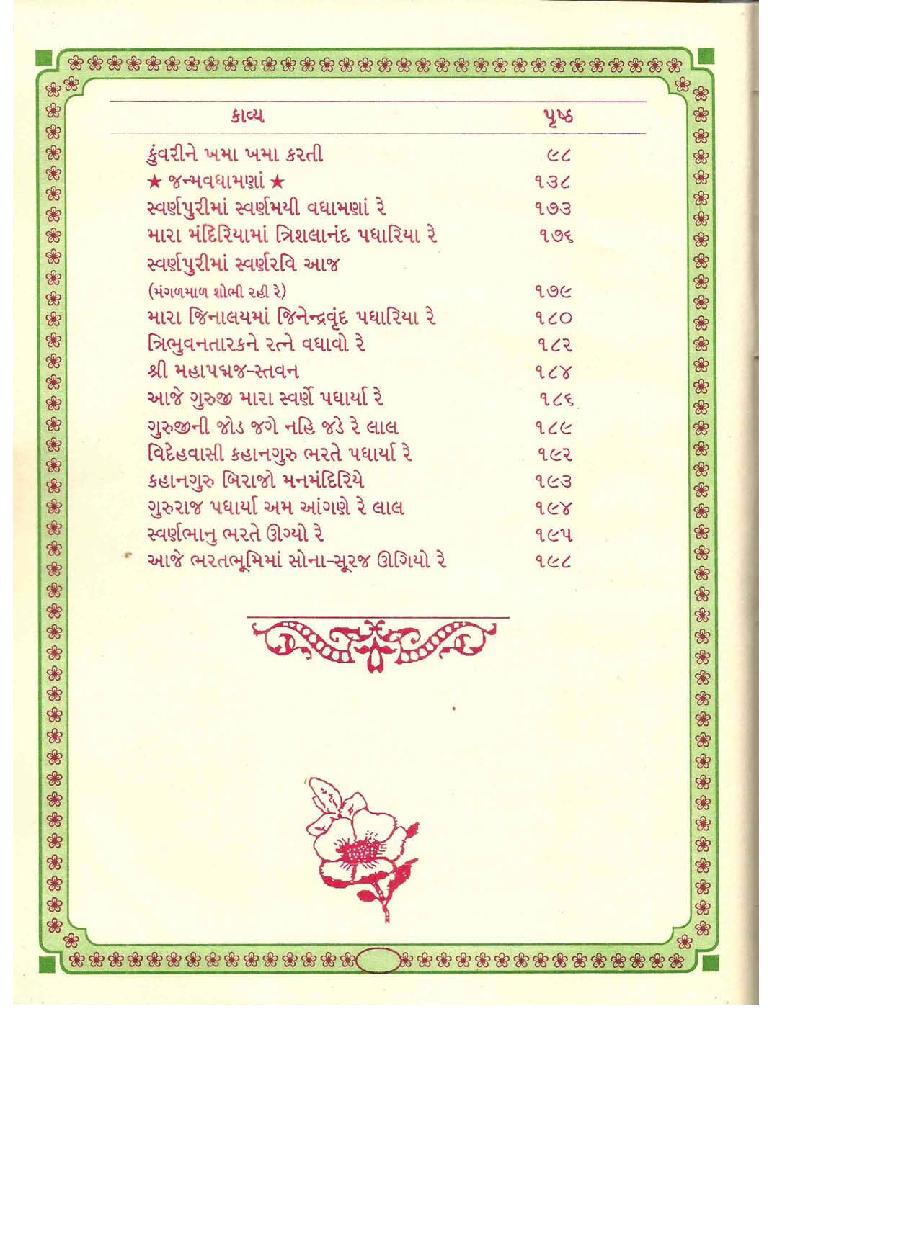 કાવ્ય પૃષ્ઠ
કુંવરીને ખમા ખમા કરતી ૯૮
★ જન્મવધામણાં ★ ૧૩૮
સ્વર્ણપુરીમાં સ્વર્ણમયી વધામણાં રે ૧૭૩
મારા મંદિરિયામાં ત્રિશલાનંદ પધારિયા રે ૧૭૬
સ્વર્ણપુરીમાં સ્વર્ણરવિ આજ
(મંગળમાળ શોભી રહી રે) ૧૭૯
મારા જિનાલયમાં જિનેન્દ્રવૃંદ પધારિયા રે ૧૮૦
ત્રિભુવનતારકને રત્ને વધાવો રે ૧૮૨
શ્રી મહાપદ્મજ-સ્તવન ૧૮૪
આજે ગુરુજી મારા સ્વર્ણે પધાર્યા રે ૧૮૬
ગુરુજીની જોડ જગે નહિ જડે રે લાલ ૧૮૯
વિદેહવાસી કહાનગુરુ ભરતે પધાર્યા રે ૧૯૨
કહાનગુરુ બિરાજો મનમંદિરિયે ૧૯૩
ગુરુરાજ પધાર્યા અમ આંગણે રે લાલ ૧૯૪
સ્વર્ણભાનુ ભરતે ઊગ્યો રે ૧૯૫
આજે ભરતભૂમિમાં સોના-સૂરજ ઊગિયો રે ૧૯૮